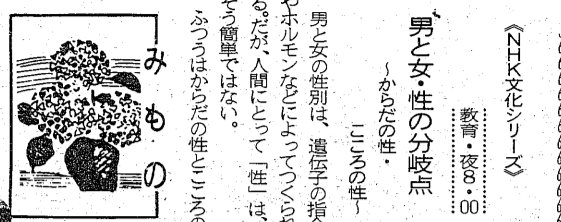 《NHK文化シリーズ》
教育・夜8・00
男と女・性の分岐点
～からだの性・
こころの性～
男と女の性別は、遺伝子の指
やホルモンなどによってつくら
る。だが、人間にとって「性」は、
そう簡単ではない。
ふつうはからだの性とこころの
みもの